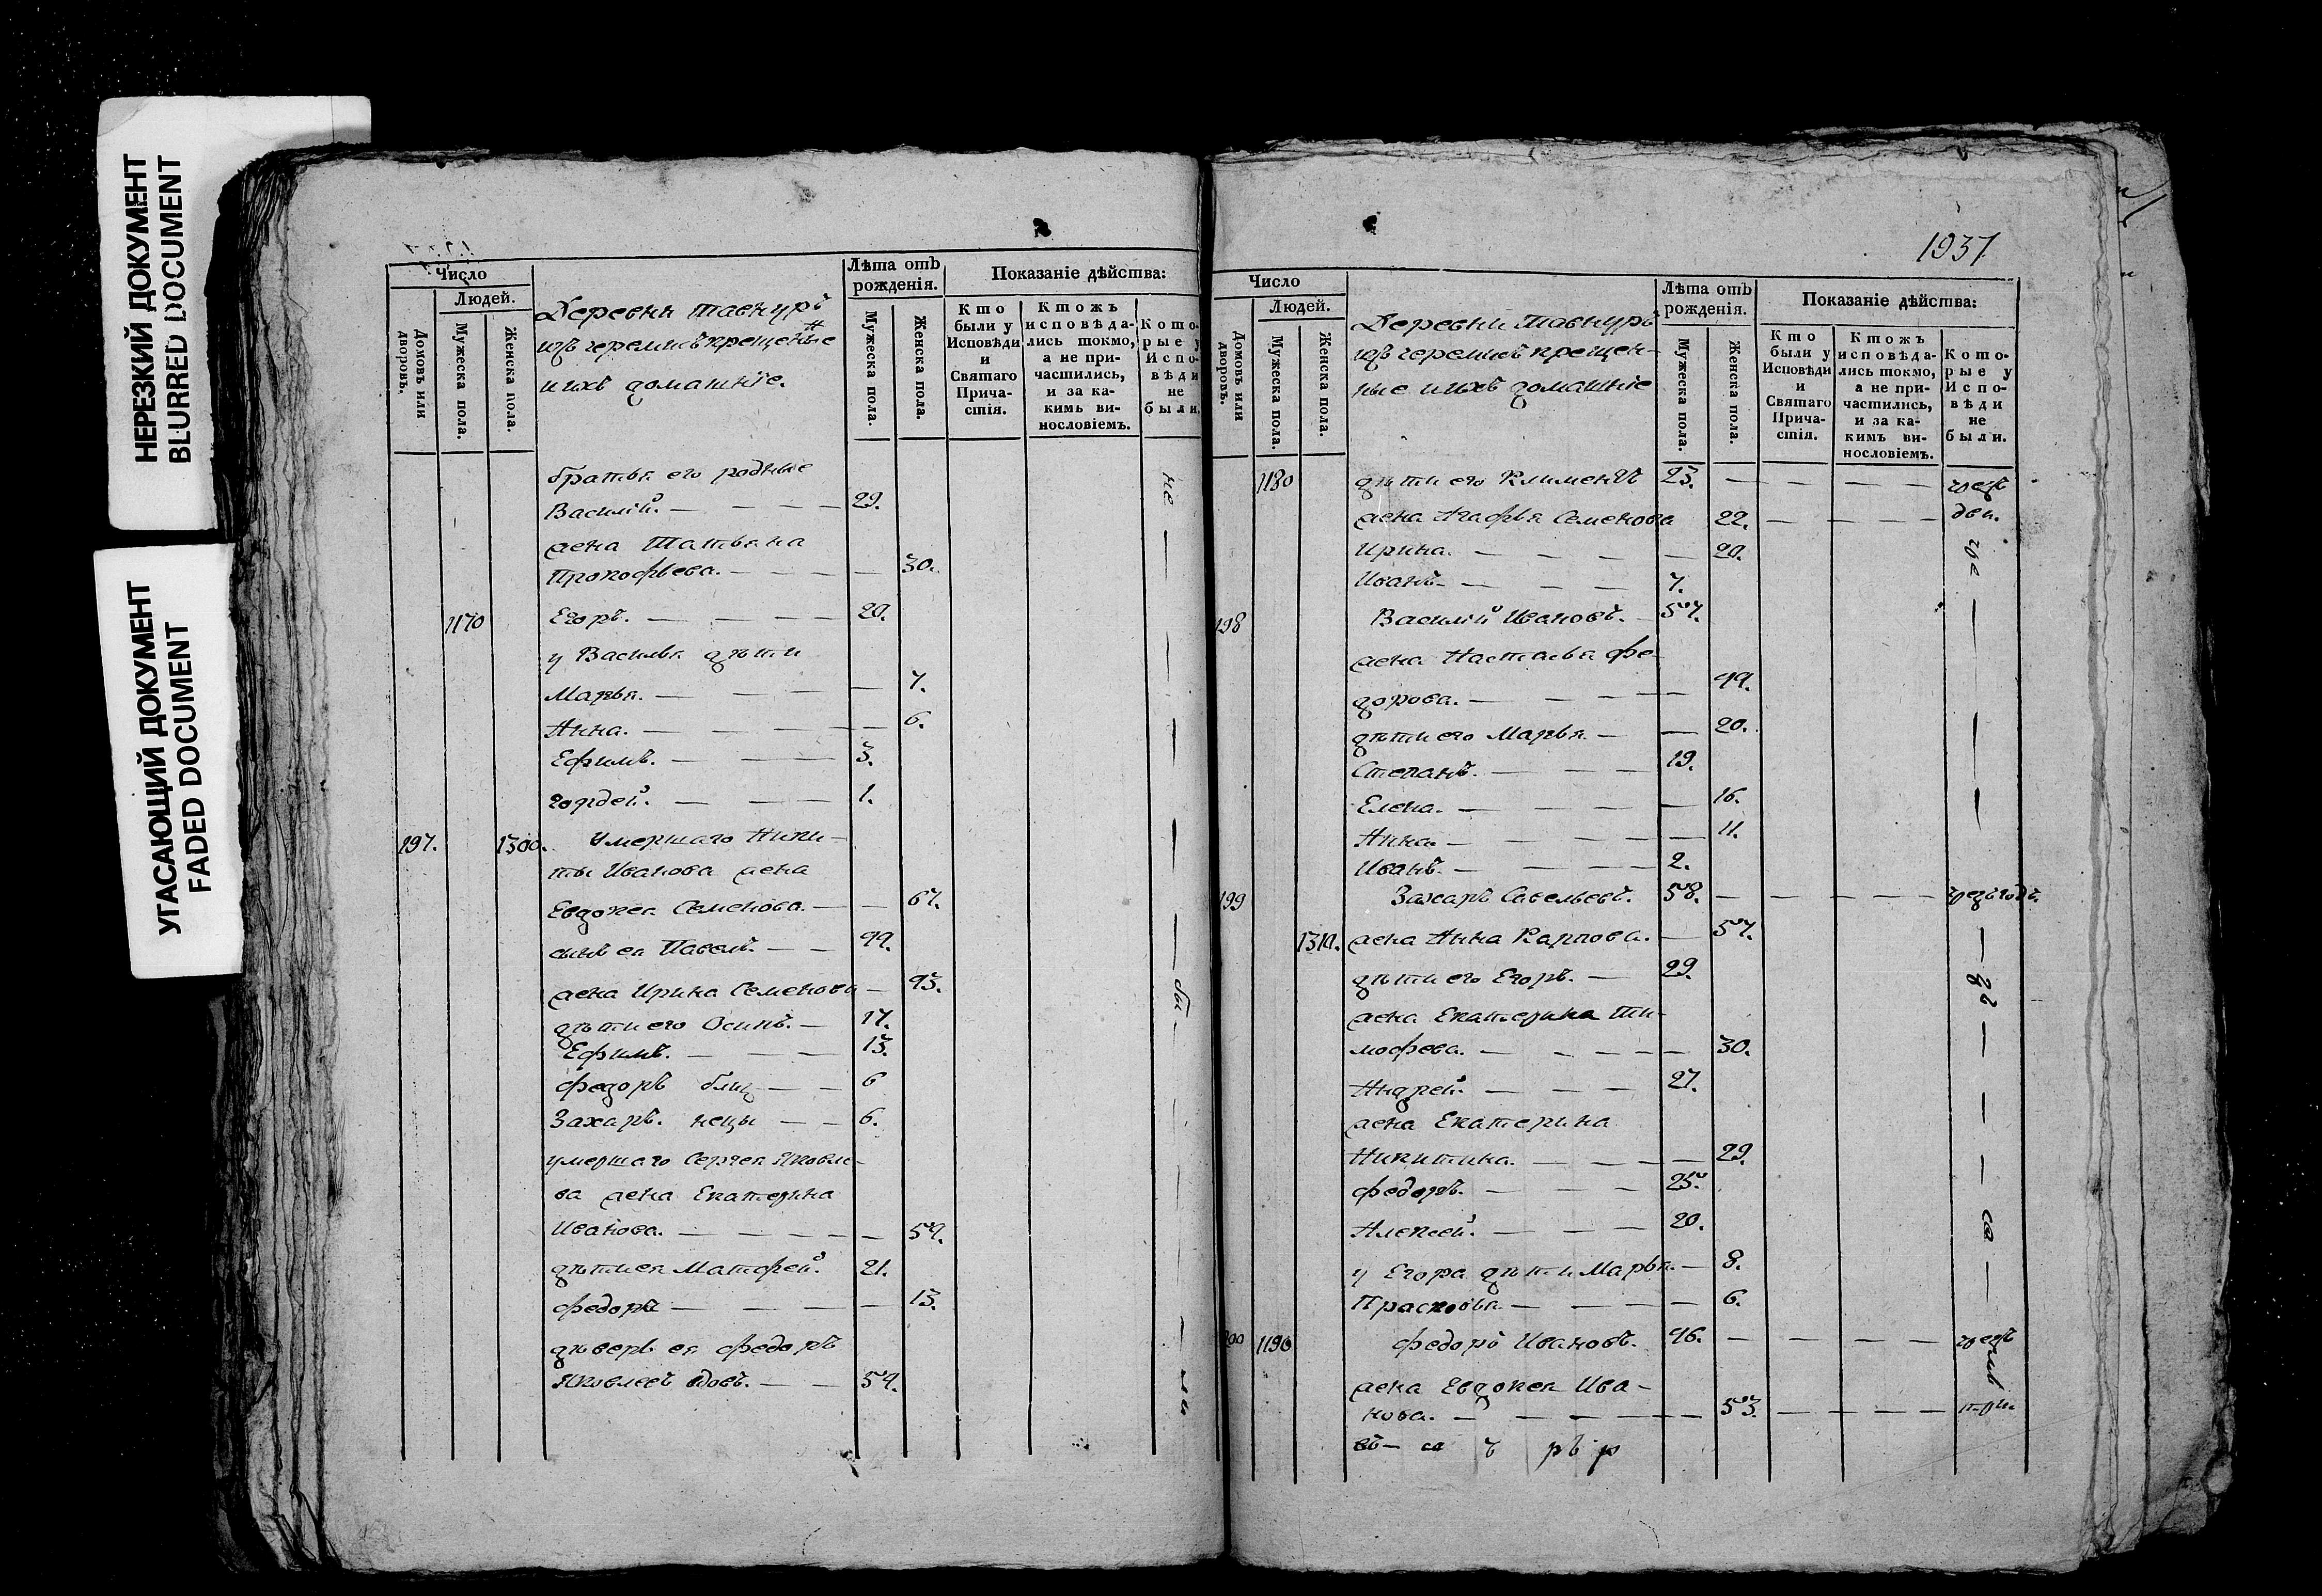 НЕРЕЗКИЙ ДОКУМЕНТ
BLURRED DOCUMENT
УГАСАЮЩИЙ ДОКУМЕНТ
FADED DOCUMENT
Число
Людей.
Домовъ или дворовъ.
Мужеска пола.
Женска пола.
Деревни Тавнуръ
изъ черемисъ крещенные
и ихъ домашніе.
Лѣта отъ рожденія.
Мужеска пола.
Женска пола.
Показаніе дѣйства:
Кто были у Исповѣди и Святаго Прича-стія.
Ктожъ исповѣда-лись токмо, а не при-частились, и за ка-кимъ ви-нословіемъ.
Кото-рые у Испо-вѣди не были.
братья его родные
Василій. — 29.
жена Татьяна
Прокофьева. — 30.
1170 Егоръ. — 20.
у Василья дѣти
Марья. — 7.
Анна. — 6.
Ефимъ. — 3.
Гордей. — 1.
197. 1300. Умершаго Ники-
ты Иванова жена
Евдокея Семенова. — 67.
сынъ ея Павелъ. — 44.
жена Ирина Семенова — 43.
дѣти его Осипъ. — 17.
Ефимъ. — 13.
Федоръ близ — 6
Захаръ. нецы — 6.
умершаго Сергея Яковле-
ва жена Екатерина
Иванова. — 54.
дѣти ея Матфей. 21.
Федора — 13.
деверь ея Федоръ
Яковлевъ вдовъ. — 54.
не
бы
ли
1937.
Число
Людей.
Домовъ или дворовъ.
Мужеска пола.
Женска пола.
Деревни Тавнуръ
изъ черемисъ крещен-
ные и ихъ домашніе
Лѣта отъ рожденія.
Мужеска пола.
Женска пола.
Показаніе дѣйства:
Кто были у Исповѣди и Святаго Прича-стія.
Ктожъ исповѣда-лись токмо, а не при-частились, и за ка-кимъ ви-нословіемъ.
Кото-рые у Испо-вѣди не были.
1180 дѣти его Климентъ 23.
жена Агафья Семенова 22.
Ирина. — 20.
Иванъ — 7.
198 Василій Ивановъ. — 57.
жена Настасья Фе-
дорова. — 49.
дѣти его Марья — 20.
Степанъ. — 19.
Елена. — 16.
Анна — 11.
Иванъ. — 2.
199 Захаръ Савельевъ. 58.
1310. жена Анна Карпова. — 57.
дѣти его Егоръ. — 29.
жена Екатерина Ти-
мофева. — 30.
Андрей. — 27.
жена Екатерина
Никитина. — 29.
Федоръ. — 25.
Алексей. — 20.
у Егора дѣти Марья. — 8.
Прасковья — 6.
200 1190 Федоръ Ивановъ. 46.
жена Евдокея Ива-
нова. — 53.